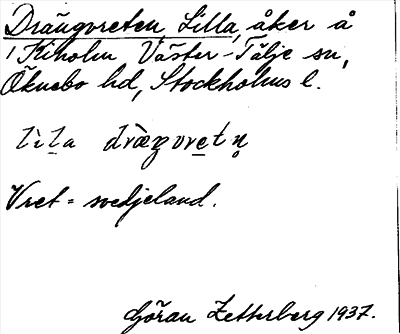 Drängvreten, Lilla, åker å
Kiholm Väster-Tälje sn,
Öknebo hd, Stockholms l.
lìl̠a dræ̀ŋvre̠tn̥
Vret = svedjeland.
Göran Zetterberg 1937.